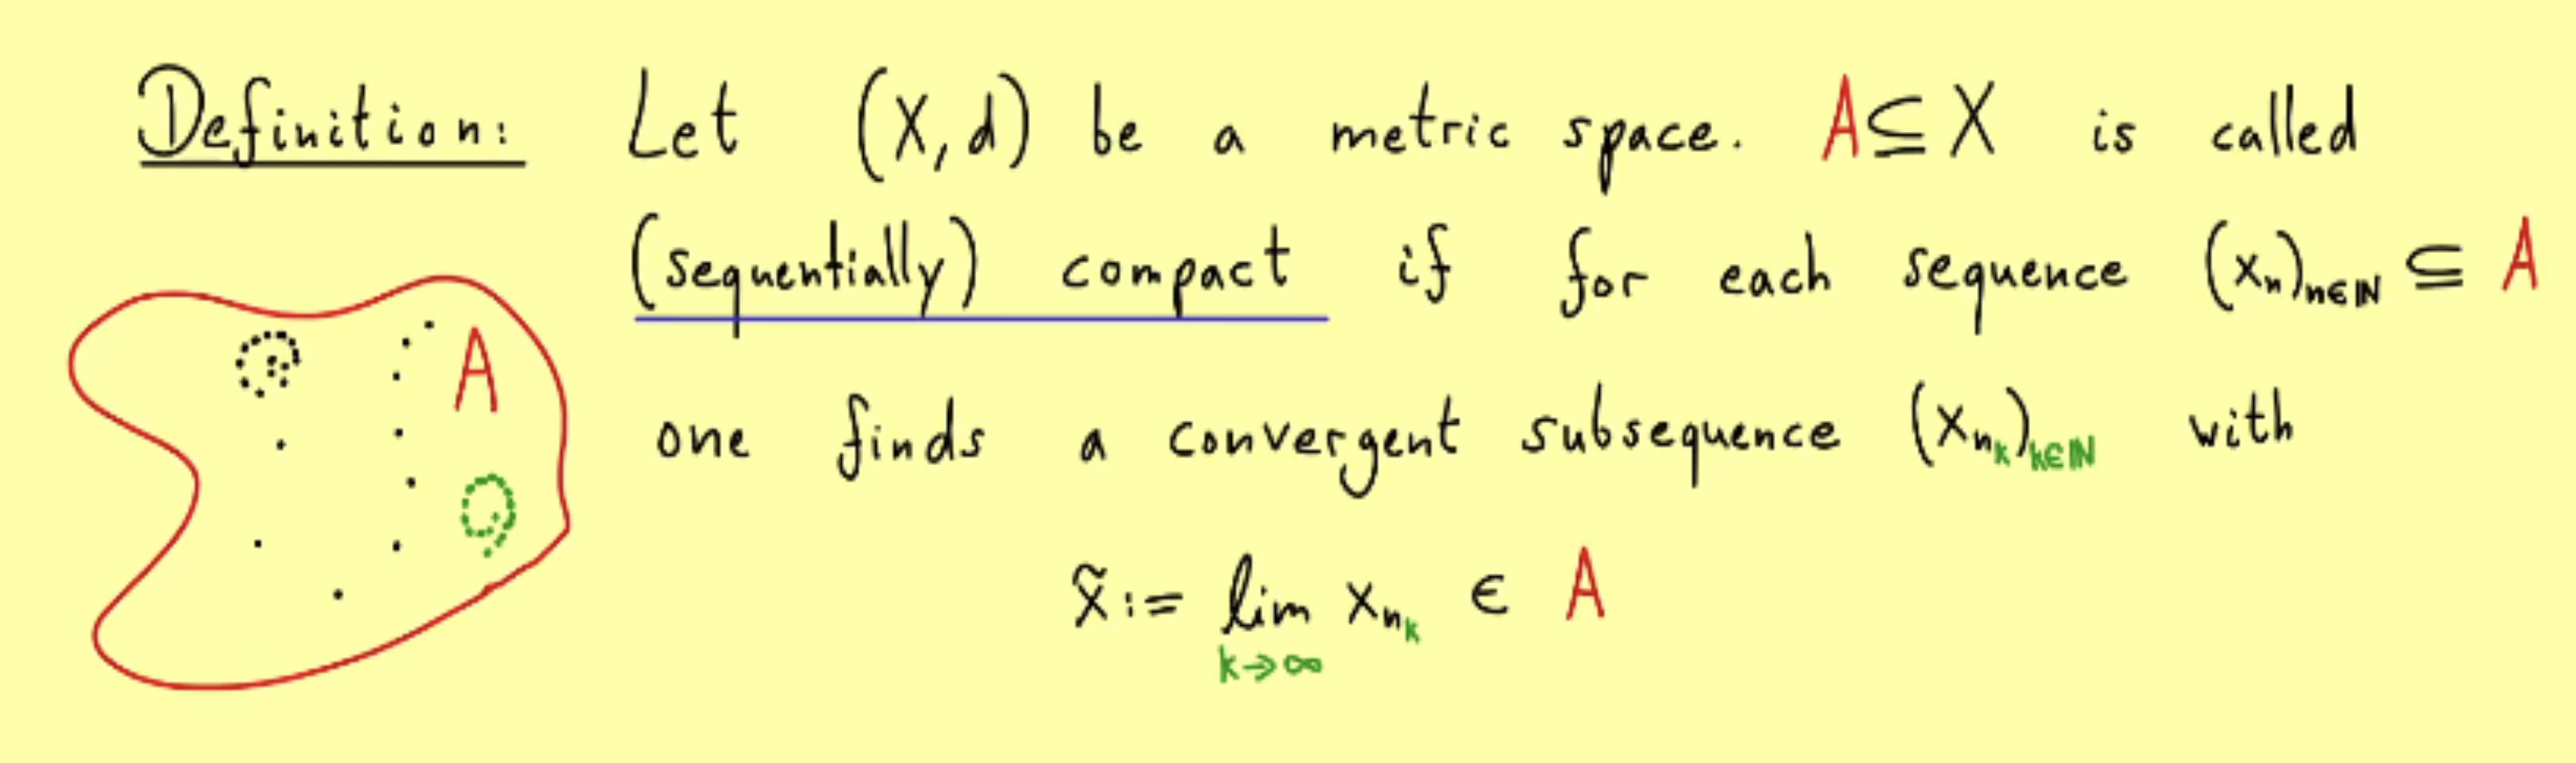 Definition: Let (X, d) be a metric space. A ⊆ X is called
(sequentially) compact if for each sequence (xₙ)ₙ∈ℕ ⊆ A
A
one finds a convergent subsequence (xₙₖ)ₖ∈ℕ with
x̃ := lim xₙₖ ∈ A
k→∞